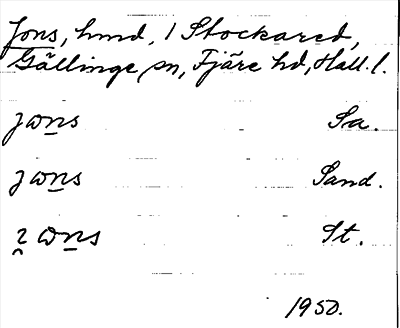 Jons, hmd, 1 Stockared,
Gällinge sn, Fjäre hd, Hall. l.
jωn̲s Sa.
jωn̲s Sand.
ωn̲s St.
1950.